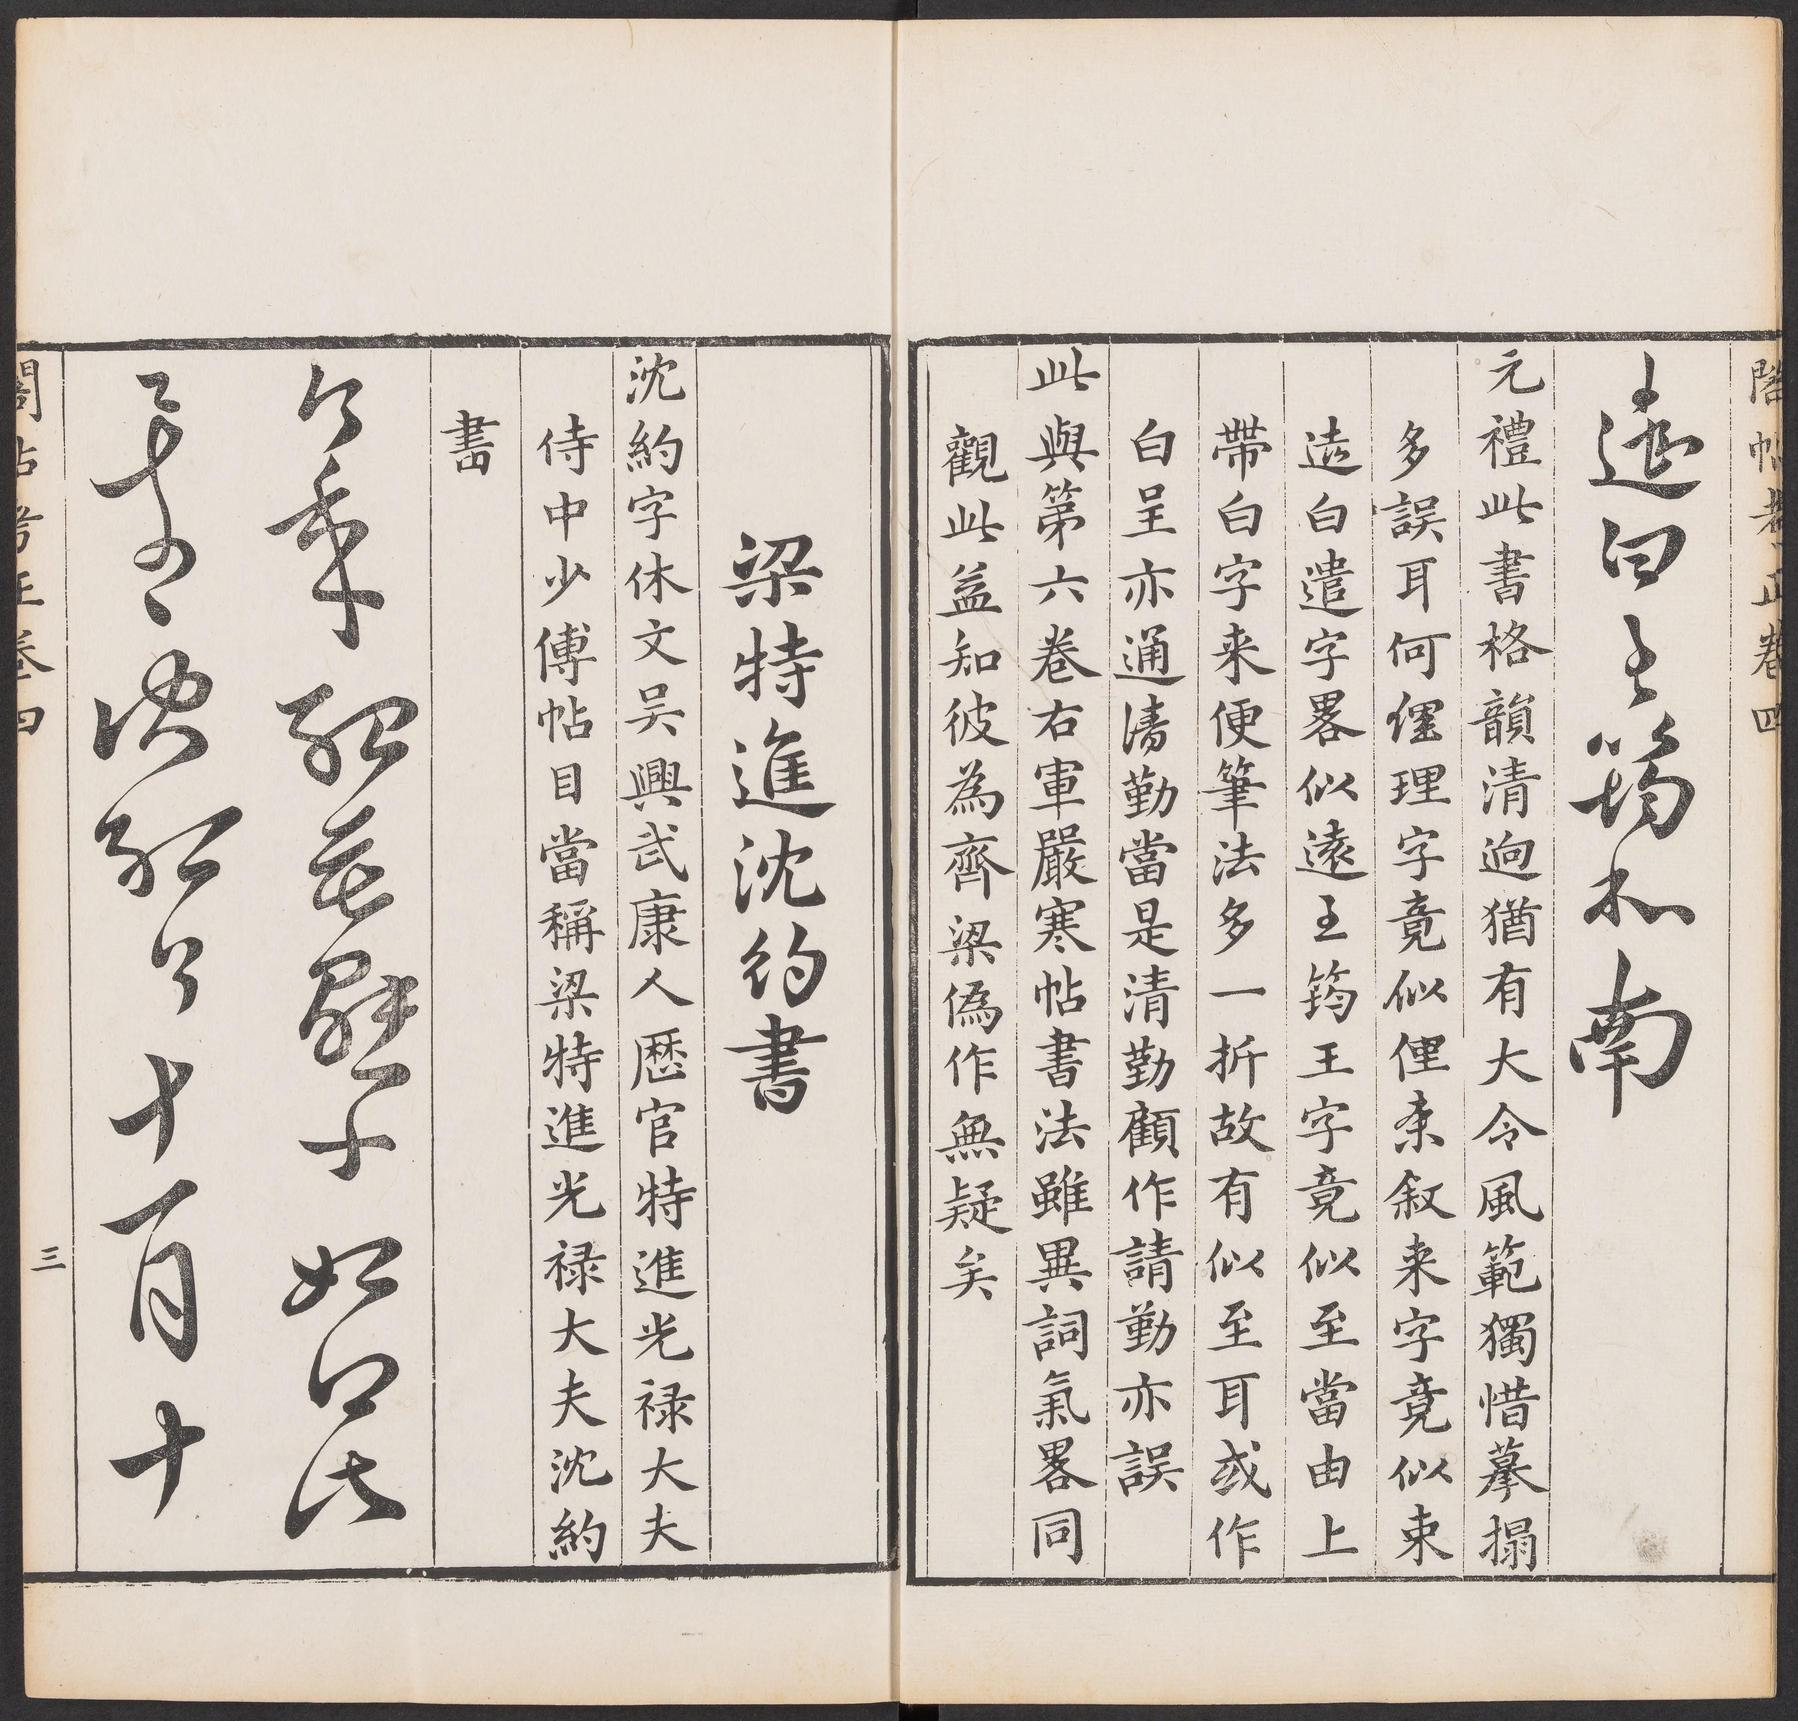 閣帖考正卷四
遠白王筠和南
元禮此書格韻清逈猶有大令風範獨惜摹搨
多誤耳何僅理字竟似俚柰叙来字竟似束
遠白遣字畧似遠王筠王字竟似至當由上
帶白字来便筆法多一折故有似至耳或作
白呈亦通清勤當是清勤顧作請勤亦誤
此與第六卷右軍嚴寒帖書法雖異詞氣畧同
觀此益知彼為齊梁偽作無疑矣
梁特進沈約書
沈約字休文吴興武康人歷官特進光禄大夫
侍中少傅帖目當稱梁特進光禄大夫沈約
書
今年
子如
十一月十
閣帖考正卷四
三